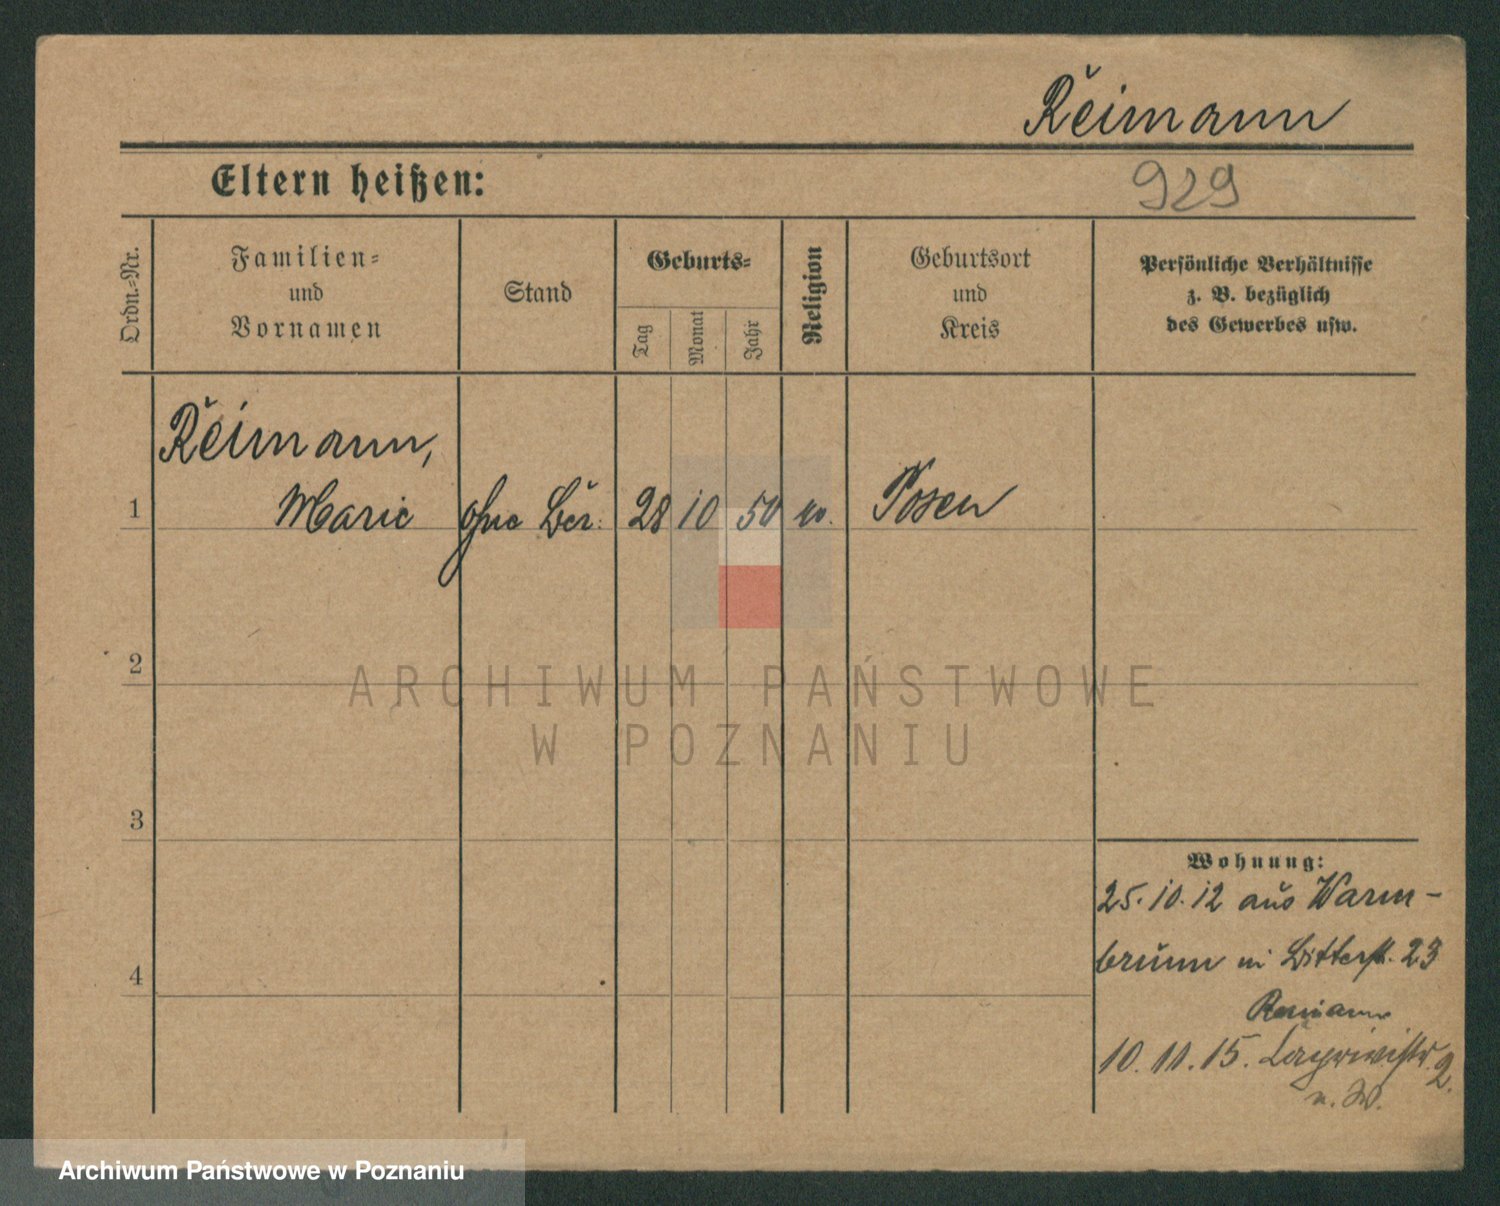 Reimann
Eltern heißen:
929
Ordn.-Nr.
Familien-
und
Vornamen
Stand
Geburts-
Tag
Monat
Jahr
Religion
Geburtsort
und
Kreis
Persönliche Verhältnisse
z. B. bezüglich
des Gewerbes usw.
Reimann,
1 Marie ohne Ber. 28 10 50 Posen
2
ARCHIWUM PAŃSTWOWE
W POZNANIU
3
Wohnung:
25.10.12 aus Warm-
brunn Ritterstr. 23
4
Reimann
10.11.15. 2.
Archiwum Państwowe w Poznaniu